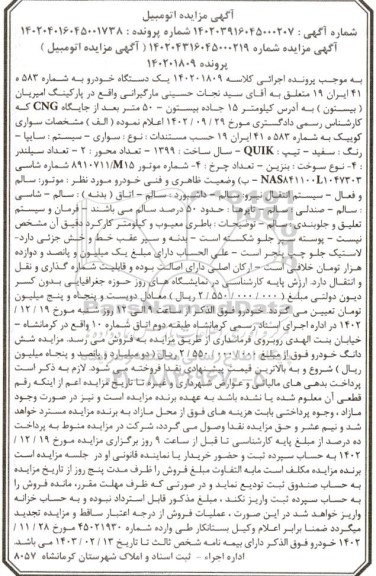 آگهی مزایده اتومبیل
شماره آگهی : ۱۴۰۲۰۳۹۱۶۰۴۵۰۰۰۲۰۷ شماره پرونده : ۱۴۰۲۰۴۰۱۶۰۴۵۰۰۱۷۳۸
آگهی مزایده شماره ۱۴۰۲۰۴۳۱۶۰۴۵۰۰۰۲۱۹ ( آگهی مزایده اتومبیل )
پرونده ۱۴۰۲۰۱۸۰۹
به موجب پرونده اجرائی کلاسه ۱۴۰۲۰۱۸۰۹ یک دستگاه خودرو به شماره ۵۸۳ ه
۴۱ ایران ۱۹ متعلق به آقای سید نجات حسینی مارگیرانی واقع در پارکینگ امیریان
( بیستون ) به آدرس کیلومتر ۱۵ جاده بیستون - ۵۰ متر بعد از جایگاه CNG که
کارشناس رسمی دادگستری مورخ ۱۴۰۲/۰۹/۲۹ اعلام نموده ( الف ) مشخصات سواری
کوییک به شماره ۵۸۳ ه ۴۱ ایران ۱۹ حسب مستندات : نوع : سواری - سیستم : سایپا -
رنگ : سفید - تیپ : QUIK - سال ساخت : ۱۳۹۹ - تعداد محور : ۲ - تعداد سیلندر
: ۴- نوع سوخت : بنزین - تعداد چرخ : ۴- شماره موتور ۸۹۱۰۷۱۱/M۱۵ شماره شاسی
NAS۸۴۱۱۰۰L۱۰۴۷۳۰۳ - ب) وضعیت ظاهری و فنی خودرو مورد نظر : موتور: سالم
و فعال - سیستم انتقال نیرو: سالم - داشبورد : سالم - اتاق ( بدنه ) : سالم - شاسی
: سالم - صندلی : سالم - تایرها : حدود ۵۰ درصد سالم می باشند - فرمان و سیستم
تعلیق و جلوبندی : سالم - توضیحات : باطری معیوب و کیلومتر کارکرد دقیق آن مشخص
نیست - پوسته سپر جلو شکسته است - بدنه و سپر عقب خط و خش جزئی دارد-
لاستیک جلو چپ پنچر است - علی الحساب دارای مبلغ یک میلیون و پانصد و دوازده
هزار تومان خلافی است - ارکان اصلی دارای اصالت بوده و قابلیت شماره گذاری و نقل
و انتقال دارد. ارزش پایه کارشناسی در نمایشگاه های روز حوزه جغرافیایی بدون کسر
دیون دولتی مبلغ (۲/۵۵۰/۰۰۰/۰۰۰ ریال ) معادل دویست و پنجاه و پنج میلیون
تومان تعیین می گردد خودرو فوق الذکر از ساعت ۹ الی ۱۲ روز شنبه مورخ ۱۲/۱۹/
۱۴۰۲ در اداره اجرای اسناد رسمی کرمانشاه طبقه دوم اتاق شماره ۱۰ واقع در کرمانشاه -
خیابان بنت الهدی روبروی فرمانداری از طریق مزایده به فروش می رسد. مزایده شش
دانگ خودرو فوق از مبلغ ۲/۵۵۰/۰۰۰/۰۰۰ ریال ( دو میلیارد و پانصد و پنجاه میلیون
ریال ) شروع و به بالاترین قیمت پیشنهادی نقدا فروخته می شود. لازم به ذکر است
پرداخت بدهی های مالیاتی و عوارض شهرداری و غیره تا تاریخ مزایده اعم از اینکه رقم
قطعی آن معلوم شده یا نشده باشد به عهده برنده مزایده است و نیز در صورت وجود
مازاد ، وجوه پرداختی بابت هزینه های فوق از محل مازاد به برنده مزایده مسترد خواهد
شد و نیم عشر و حق مزایده نقدا وصول می گردد، شرکت در مزایده منوط به پرداخت
ده درصد از مبلغ پایه کارشناسی تا قبل از ساعت ۹ روز برگزاری مزایده مورخ ۱۲/۱۹/
۱۴۰۲ به حساب سپرده ثبت و حضور خریدار یا نماینده قانونی او در جلسه مزایده است
برنده مزایده مکلف است مابه التفاوت مبلغ فروش را ظرف مدت پنج روز از تاریخ مزایده
به حساب صندوق ثبت تودیع نماید و در صورتی که ظرف مهلت مقرر، مانده فروش را
به حساب سپرده ثبت واریز نکند ، مبلغ مذکور قابل استرداد نبوده و به حساب خزانه
واریز خواهد شد در این صورت ، عملیات فروش از درجه اعتبار ساقط و مزایده تجدید
میگردد ضمنا برابر اعلام وکیل بستانکار طی وارده شماره ۴۵۰۲۱۹۳۰ مورخ ۱۱/۲۸/
۱۴۰۲ خودرو فوق الذکر دارای بیمه نامه شخص ثالث تا تاریخ ۱۴۰۳/۰۲/۱۳ می باشد.
اداره اجراء - ثبت اسناد و املاک شهرستان کرمانشاه ۸۰۵۷